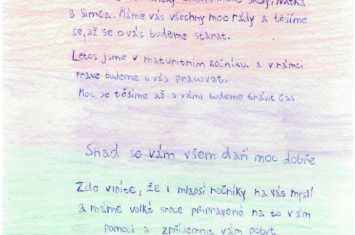 školy, Natka
a Simča. Máme vás všechny moc rády a těšíme
se, až se o vás budeme starat.
Letos jsme v maturitním ročníku a v rámci
praxe budeme u vás pracovat.
Moc se těšíme až s vámi budeme trávit čas
Snad se vám všem daří moc dobře.
Zde vidíte, že i mladší ročníky na vás myslí
a máme velké srdce připravené na to vám
pomoci a zpříjemnit vám pobyt.